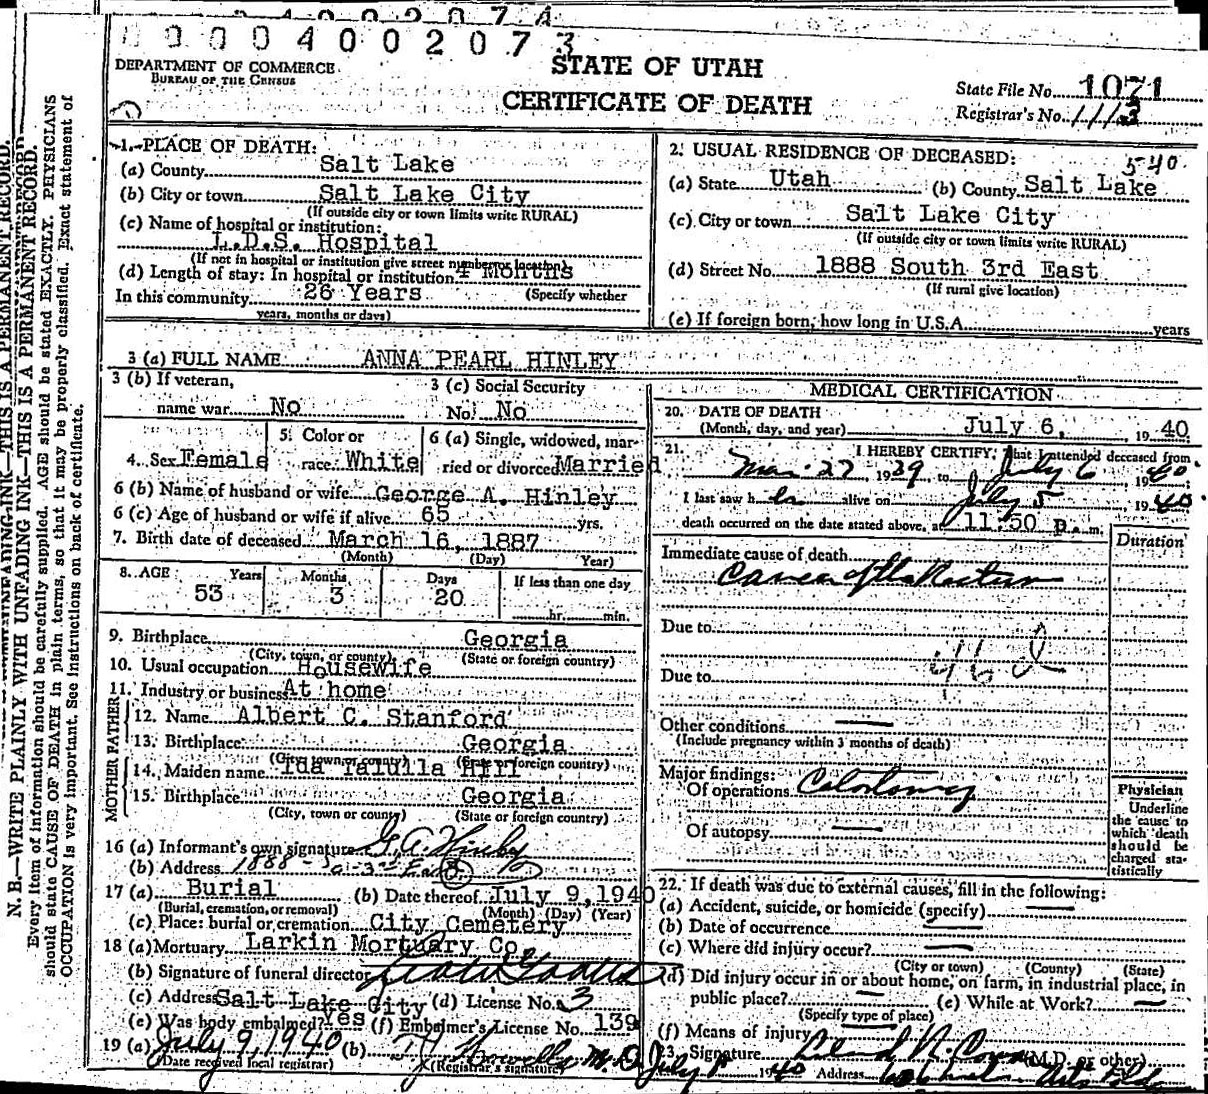 00004002073
STATE OF UTAH
CERTIFICATE OF DEATH
DEPARTMENT OF COMMERCE
BUREAU OF THE CENSUS
State File No. 1071
Registrar's No. 1113
N. B.—WRITE PLAINLY WITH UNFADING INK—THIS IS A PERMANENT RECORD.
Every item of information should be carefully supplied. AGE should be stated EXACTLY. PHYSICIANS
should state CAUSE OF DEATH in plain terms, so that it may be properly classified. Exact statement of
OCCUPATION is very important. See instructions on back of certificate.
1. PLACE OF DEATH:
(a) County Salt Lake
(b) City or town Salt Lake City
(If outside city or town limits write RURAL)
(c) Name of hospital or institution:
L.D.S. Hospital
(If not in hospital or institution give street number or location)
(d) Length of stay: In hospital or institution 4 Months
In this community 26 Years (Specify whether
years, months or days)
2. USUAL RESIDENCE OF DECEASED: 540
(a) State Utah (b) County Salt Lake
(c) City or town Salt Lake City
(If outside city or town limits write RURAL)
(d) Street No. 1888 South 3rd East
(If rural give location)
(e) If foreign born, how long in U.S.A. years
3 (a) FULL NAME ANNA PEARL HINLEY
3 (b) If veteran, 3 (c) Social Security
name war No No. No
4. Sex Female 5. Color or race White 6 (a) Single, widowed, married or divorced Married
6 (b) Name of husband or wife George A. Hinley
6 (c) Age of husband or wife if alive 65 yrs.
7. Birth date of deceased March 16, 1887
(Month) (Day) Year)
8. AGE Years Months Days If less than one day
53 3 20 hr. min.
9. Birthplace Georgia
(City, town, or county) (State or foreign country)
10. Usual occupation Housewife
11. Industry or business At home
FATHER
12. Name Albert C. Stanford
13. Birthplace Georgia
(City, town or county) (State or foreign country)
MOTHER
14. Maiden name Ida Talulla Hill
15. Birthplace Georgia
(City, town or county) (State or foreign country)
16 (a) Informant's own signature G. A. Hinley
(b) Address 1888 - So - 3rd East
17 (a) Burial (b) Date thereof July 9, 1940
(Burial, cremation, or removal) (Month) (Day) (Year)
(c) Place: burial or cremation City Cemetery
18 (a) Mortuary Larkin Mortuary Co.
(b) Signature of funeral director
(c) Address Salt Lake City (d) License No. 3
(e) Was body embalmed? Yes (f) Embalmer's License No. 139
19 (a) July 9, 1940 (b) M. D.
(Date received local registrar) (Registrar's signature)
MEDICAL CERTIFICATION
20. DATE OF DEATH
(Month, day, and year) July 6, 1940
21. I HEREBY CERTIFY, That I attended deceased from
Mar. 27 1939, to July 6 1940
I last saw her alive on July 5 1940
death occurred on the date stated above, at 11:50 P. m.
Duration
Immediate cause of death
Cancer of the Rectum
Due to
Due to
Other conditions —
(Include pregnancy within 3 months of death)
Major findings:
Of operations Colostomy
Of autopsy —
Physician
Underline
the cause to
which death
should be
charged sta-
tistically
22. If death was due to external causes, fill in the following:
(a) Accident, suicide, or homicide (specify) —
(b) Date of occurrence —
(c) Where did injury occur? —
(City or town) (County) (State)
(d) Did injury occur in or about home, on farm, in industrial place, in
public place? — (e) While at Work? —
(Specify type of place)
(f) Means of injury
23. Signature (M.D. or other)
July 1940 Address